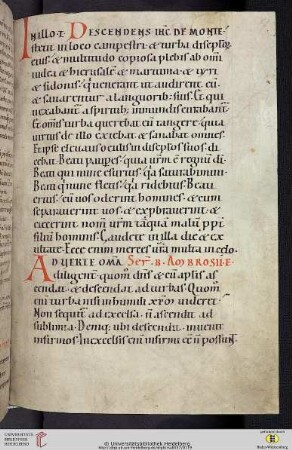 IN ILLO T. DESCENDENS IHC DE MONTE
stetit in loco campestri & turba discipłoꝝ
eius. & multitudo copiosa plebis ab om̄i
iudea & hierusalē & maritima & tyri
& sidonis. q̇ uenerant ut audirent eū.
& sanarentur a languorib; suis. Et qui
uexabant᷑ a spiritib; inmundis curabant᷑.
Et om̄is turba querebat eū tangere. quia
uirtus de illo exiebat & sanabat omnes.
Et ipse eleuatis oculis in discipłos suos di
cebat. Beati paup̄es. quia ur̄m ē regnū dī.
Beati qui nunc esuritis. qa saturabimini.
Beati q̇ nunc fletis. qa ridebitis. Beati
eritis cū uos oderint homines. & cum
separauerint uos. & exprobrauerint. &
eiecerint nom̄ ur̄m tāquā malū pp̄t
filiū hominis. Gaudete in illa die & ex
ultate. Ecce enim merces ur̄a multa in cęlo.
ADUERTE OMĪA Ser. B. AMBROSII. E.
diligent᷑. quom̄ & cū aptis as
cendat. & descendat ad turbas. Quom̄
eni turba nisi in humili xp̄m uideret.
Non sequit᷑ ad excelsa. n̄ ascendit ad
sublimia. Deniq; ubi descendit. inuenit
infirmos. In excelsis eni infirmi ee n̄ possunt.
UNIVERSITÄTS-
BIBLIOTHEK
HEIDELBERG
© Universitätsbibliothek Heidelberg
gefördert durch
Baden-Württemberg